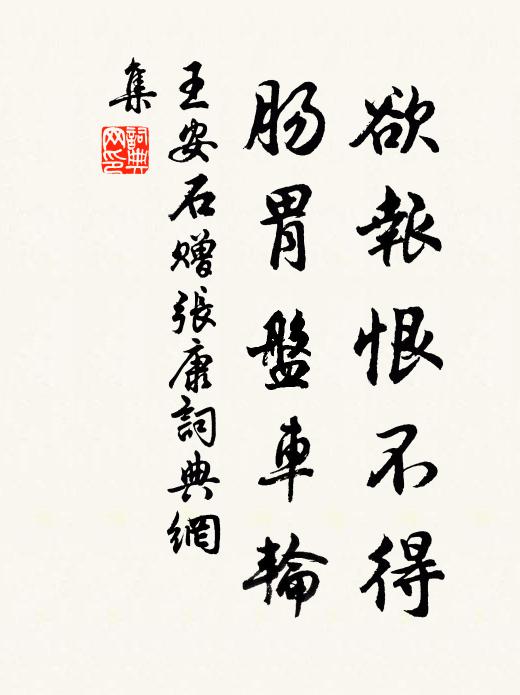 欲報恨不得
腸胃盤車輪
王安石贈張康詞典網
集
詞典
网印